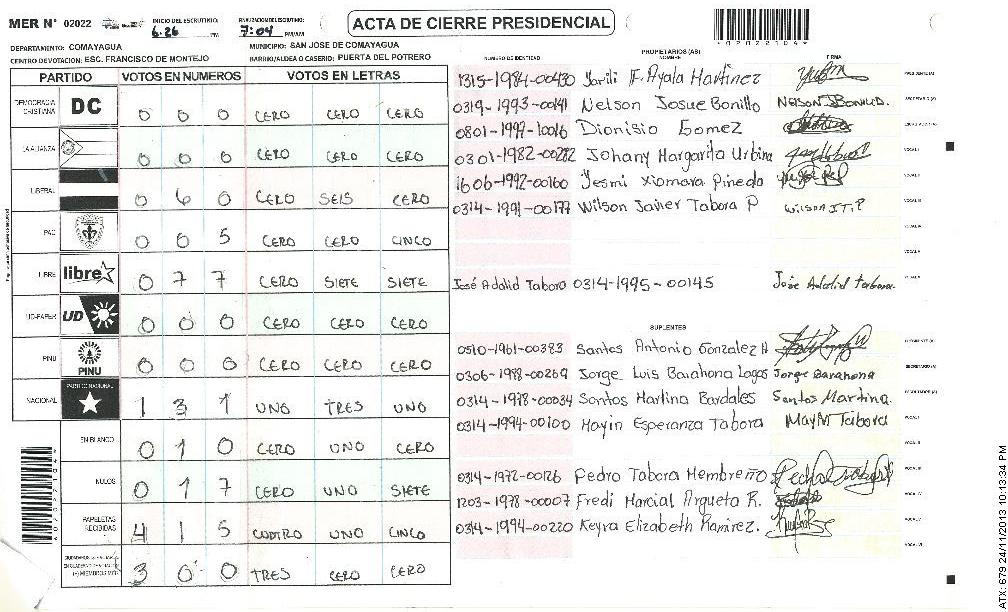 MER Nº 02022
INICIO DEL ESCRUTINIO:
6:26 PM
FINALIZACION DEL ESCRUTINIO:
7:04 PM/AM
ACTA DE CIERRE PRESIDENCIAL
DEPARTAMENTO: COMAYAGUA
MUNICIPIO: SAN JOSE DE COMAYAGUA
CENTRO DE VOTACION: ESC. FRANCISCO DE MONTEJO
BARRIO/ALDEA O CASERIO: PUERTA DEL POTRERO
PARTIDO VOTOS EN NUMEROS VOTOS EN LETRAS
DEMOCRACIA CRISTIANA DC 0 0 0 CERO CERO CERO
LA ALIANZA 0 0 0 CERO CERO CERO
LIBERAL 0 6 0 CERO SEIS CERO
PAC 0 0 5 CERO CERO CINCO
LIBRE libre 0 7 7 CERO SIETE SIETE
UD-FAPER UD 0 0 0 CERO CERO CERO
PINU PINU 0 0 0 CERO CERO CERO
NACIONAL PARTIDO NACIONAL 1 3 1 UNO TRES UNO
EN BLANCO 0 1 0 CERO UNO CERO
NULOS 0 1 7 CERO UNO SIETE
PAPELETAS RECIBIDAS 4 1 5 CUATRO UNO CINCO
3 0 0 TRES CERO CERO
PROPIETARIOS (AS)
NUMERO DE IDENTIDAD NOMBRE FIRMA
1315-1984-00430 Yarili F. Ayala Martinez PRESIDENTE (A)
0319-1993-00141 Nelson Josue Bonillo NELSON J BONILLO. SECRETARIO (A)
0801-1997-10016 Dionisio Gomez
0301-1982-00282 Johany Margarita Urbina VOCAL I
1606-1992-00160 Yesmi Xiomara Pinedo VOCAL II
0314-1991-00177 Wilson Javier Tabora P Wilson J T. P VOCAL III
José Adalid Tabora 0314-1995-00145 José Adalid Tabora.
SUPLENTES
0510-1961-00383 Santos Antonio Gonzalez H
0306-1988-00269 Jorge Luis Barahona Lagos Jorge Barahona SECRETARIO (A)
0314-1978-00034 Santos Martina Bardales Santos Martina. ESCRUTADOR (A)
0314-1994-00100 Mayin Esperanza Tabora Mayin Tabora VOCAL I
VOCAL II
0314-1972-00126 Pedro Tabora Membreño VOCAL III
1203-1978-00007 Fredi Marcial Argueta R. VOCAL IV
0314-1994-00220 Keyra Elizabeth Ramirez. VOCAL V
VOCAL VI
ATX: 679 24/11/2013 10:13:34 PM